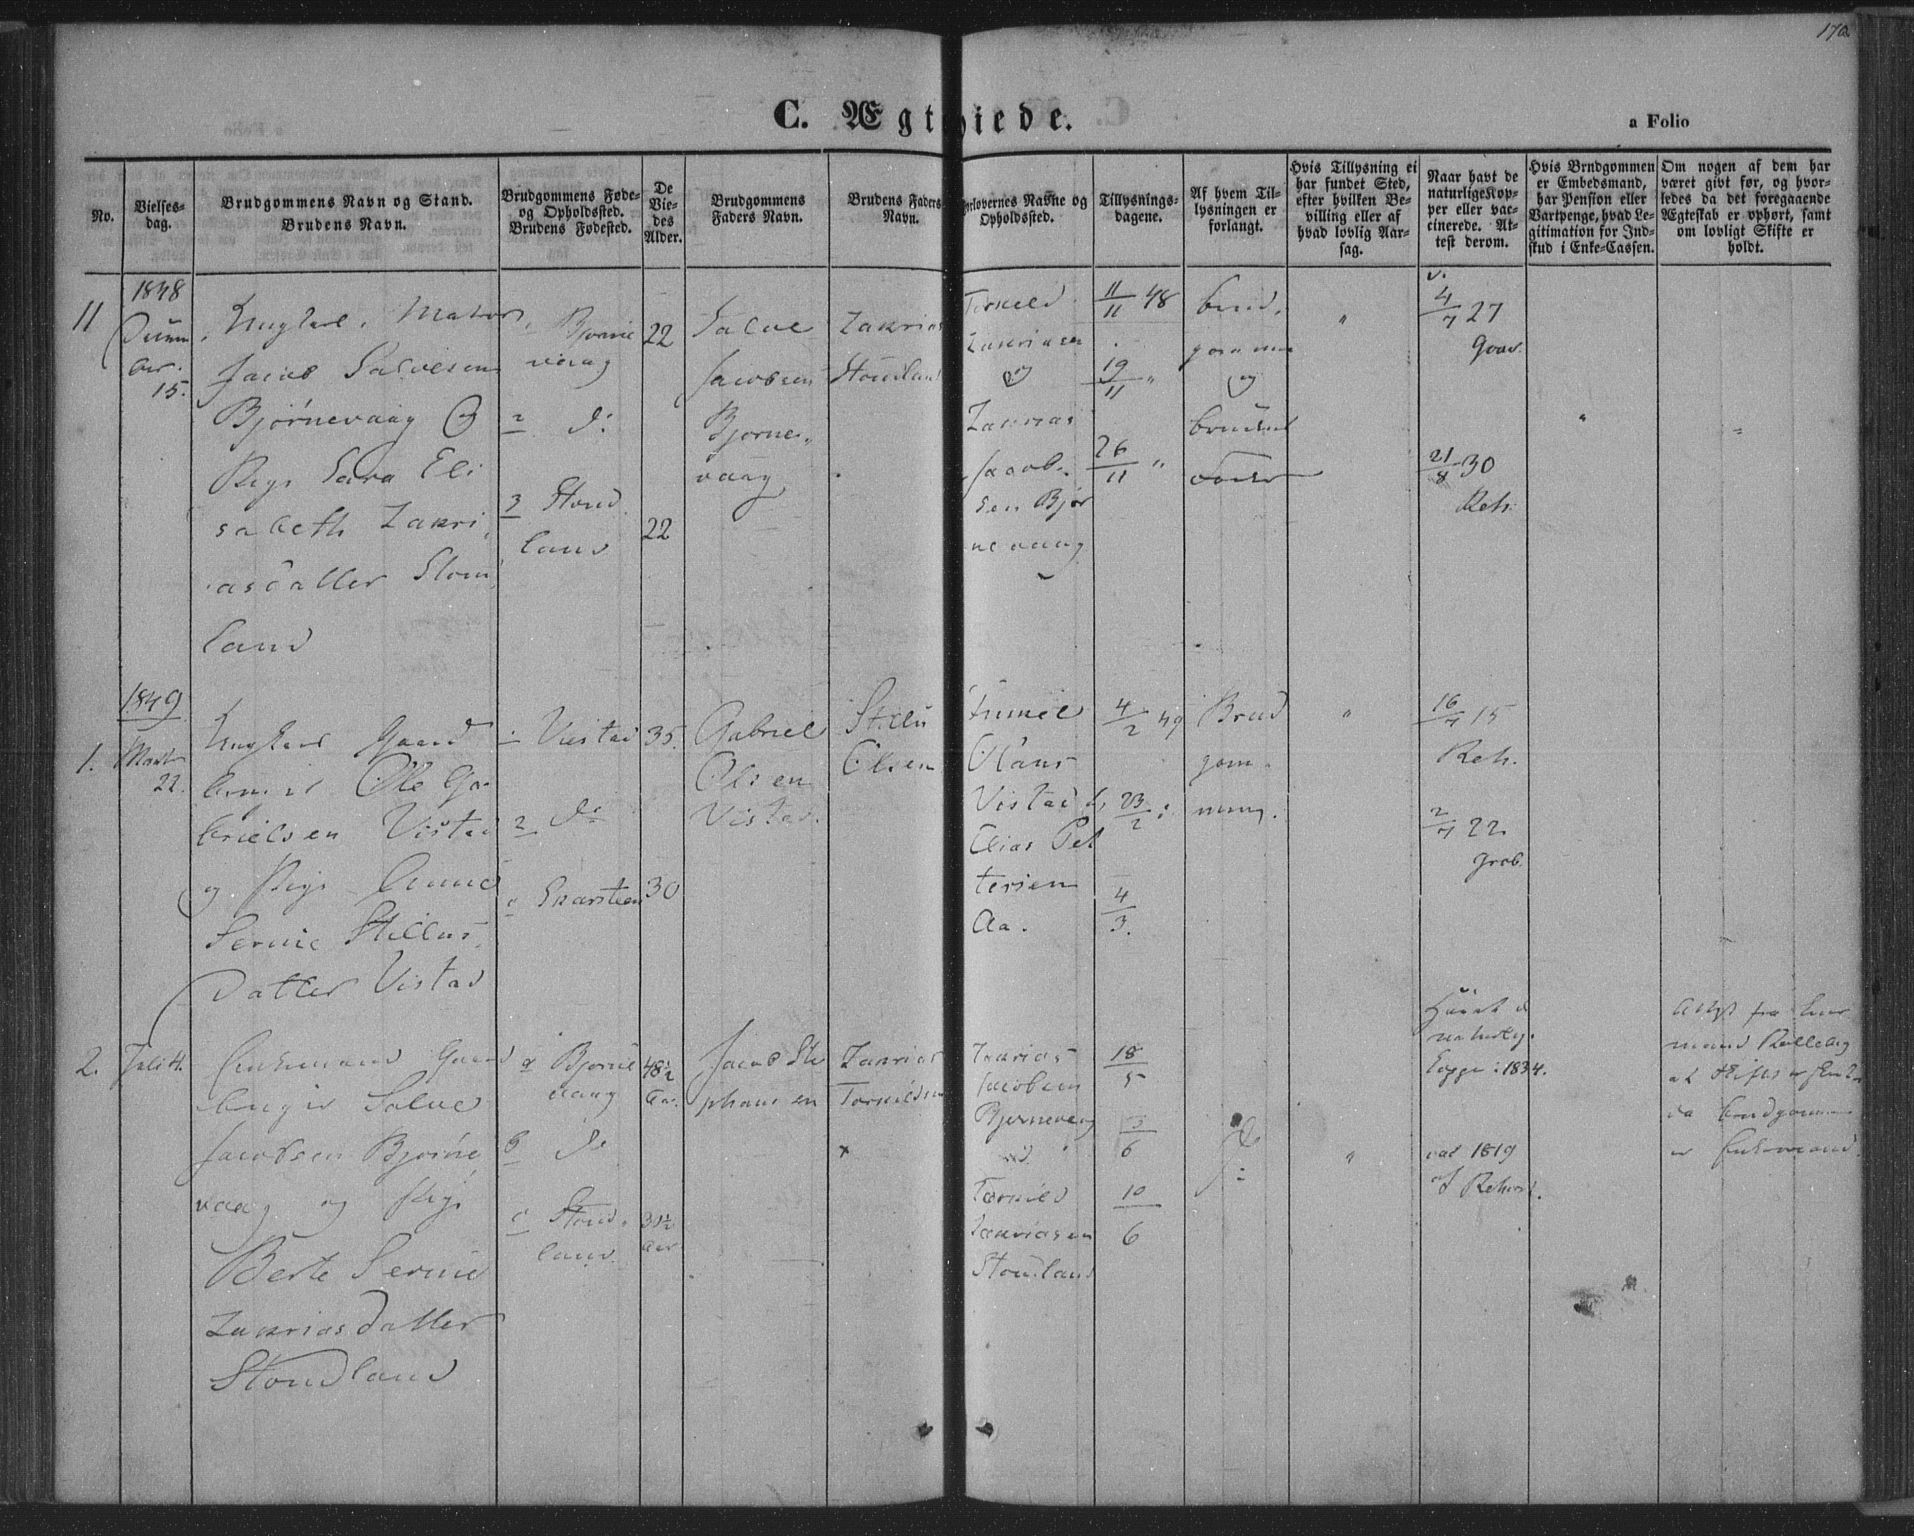 170
C. Ægteviede.
a Folio
No.
Vielses-
dag.
Brudgommens Navn og Stand.
Brudens Navn.
Brudgommens Føde-
og Opholdssted.
Brudens Fødested.
De
Vie-
des
Alder.
Brudgommens
Faders Navn.
Brudens Faders
Navn.
Forlovernes Navne og
Opholdssted.
Tillysnings-
dagene.
Af hvem Til-
lysningen er
forlangt.
Hvis Tillysning ei
har fundet Sted,
efter hvilken Be-
villing eller af
hvad lovlig Aar-
sag.
Naar havt de
naturlige Kop-
per eller vac-
cinerede. At-
test derom.
Hvis Brudgommen
er Embedsmand,
har Pension eller
Vartpenge, hvad Le-
gitimation for Ind-
skud i Enke-Cassen.
Om nogen af dem har
været givt før, og hvor-
ledes da det foregaaende
Ægteskab er ophørt, samt
om lovligt Skifte er
holdt.
1848
11
15.
Ungkarl, Matros
Jacob Salvesen
Bjørnevaag og
Pige Sara Eli
sabeth Zakri
asdatter Stom
land
1 Bjørne
vaag
2 do
3 Stond
land
22
22
Salve
Jacobsen
Bjørne
vaag
Zakrias
Stomland
Torkild
Zakriasen
og
Zakrias
Jacob
sen Bjør
nevaag
11/11 48
19/11 "
26/11 "
brud
gommen
og
brudens
fader
"
v.
4/7 27
21/8 30
Reh.
"
"
1849
1.
Marts
22.
Ungkarl Gaard
Ole Ga
brielsen Vistad
og Pige Anne
Serine Stillus
Datter Vistad
1 Vistad
2 do
35
30
Gabriel
Olsen
Vistad.
Olsen
Vistad
Elias Pet
tersen
Aa.
4/2 49
23/2
4/3.
Brud
gom
"
16/7 15
Reh.
2/7 22
2.
Juli 4.
Enkemand Gaard
bruger Salve
Jacobsen Bjørne
vaag og Pige
Berte Serine
Zakriasdatter
Stondland
a Bjørne
vaag
b do
c Stond
land
48½
Aar.
30½
Aar
Jacob Ste
phansen
Zakrias
Torkildsen
x
Zakrias
Jacobsen
Bjørnevaag
Torkild
Zakriasen
Stondland
18/5
3/6
10/6
do
"
Havt d
naturlig.
Koppe i 1834.
vac 1819
af Reh
Attest fra
mand
at Skifte er
da brudgommen
er Enkemand.